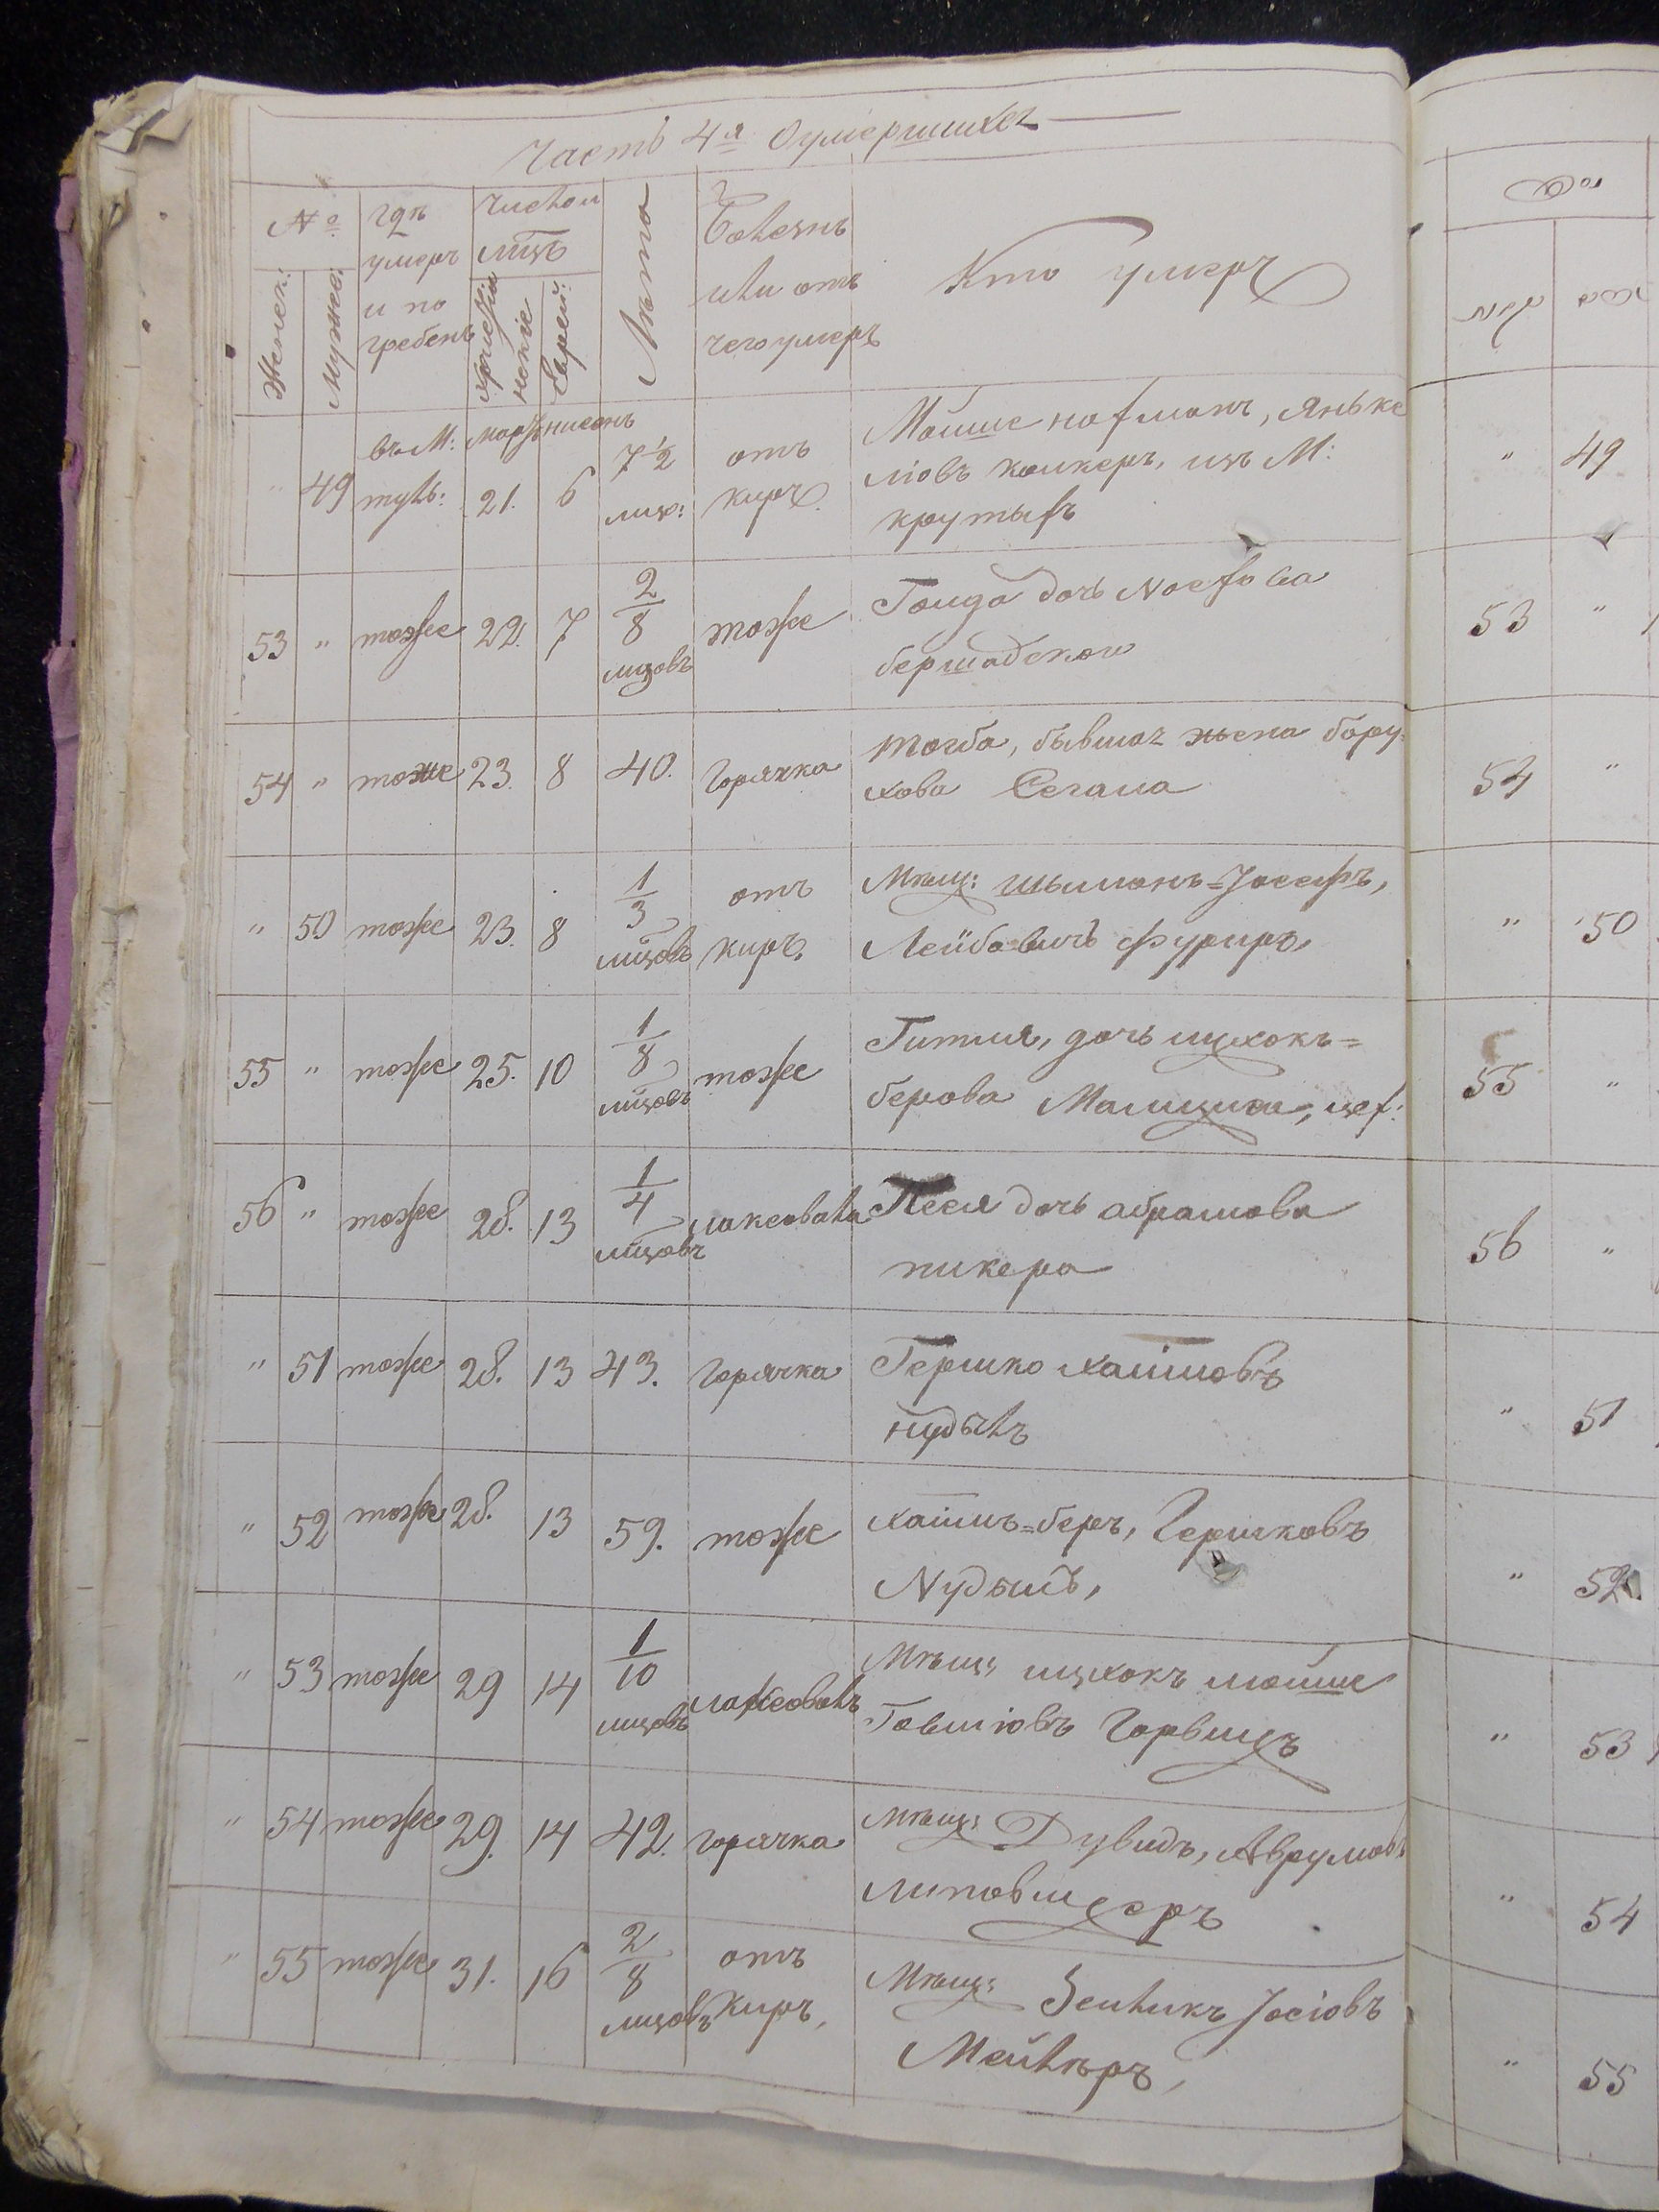 Часть 4я Оумершихъ
№о
Женск:
Мужес:
гдѣ умеръ и по гребенъ
Число и мцъ
христіан нскіе
Еврей:
Лѣта
Болезнь или отъ чего умеръ
Кто умеръ
49 въ М: туль: мартъ 21. нисанъ 6 7½ мцо: отъ киръ. Мойше нахманъ, Янькеліовъ кошкеръ, изъ М: крутыхъ
53 " тоже 22. 7 2/8 мцовъ тоже Гоида дочь Nосехова бершадской
54 " тоже 23. 8 40. горячка Тогба, бывшая жена Борухова Сегала
" 50 тоже 23. 8 1/3 мцовъ отъ киръ. Мѣщ: шьмонъ=Іосефъ, Лейбовичъ фуриръ,
55 " тоже 25. 10 1/8 мцовъ тоже Гитля, дочь ицхокъ=берова цех:
56 " тоже 28. 13 1/4 мцовъ Песя дочь абрамова пикера
" 51 тоже 28. 13 43. горячка Гершко хаімовъ нудыль
" 52 тоже 28. 13 59. тоже хаімъ=беръ, Гершковъ Nудыль,
" 53 тоже 29 14 1/10 мцовъ Мѣщ: ицхокъ мойше Говшіовъ Горвицъ
" 54 тоже 29. 14 42. горячка Мѣщ: Дувидъ, Аврумовъ липовецеръ
" 55 тоже 31. 16 2/8 мцовъ отъ киръ, Мѣщ: Зейликъ Іосіовъ Мейлѣръ,
" 49
53 "
54 "
" 50
55 "
56 "
" 51
" 52.
" 53
" 54
" 55